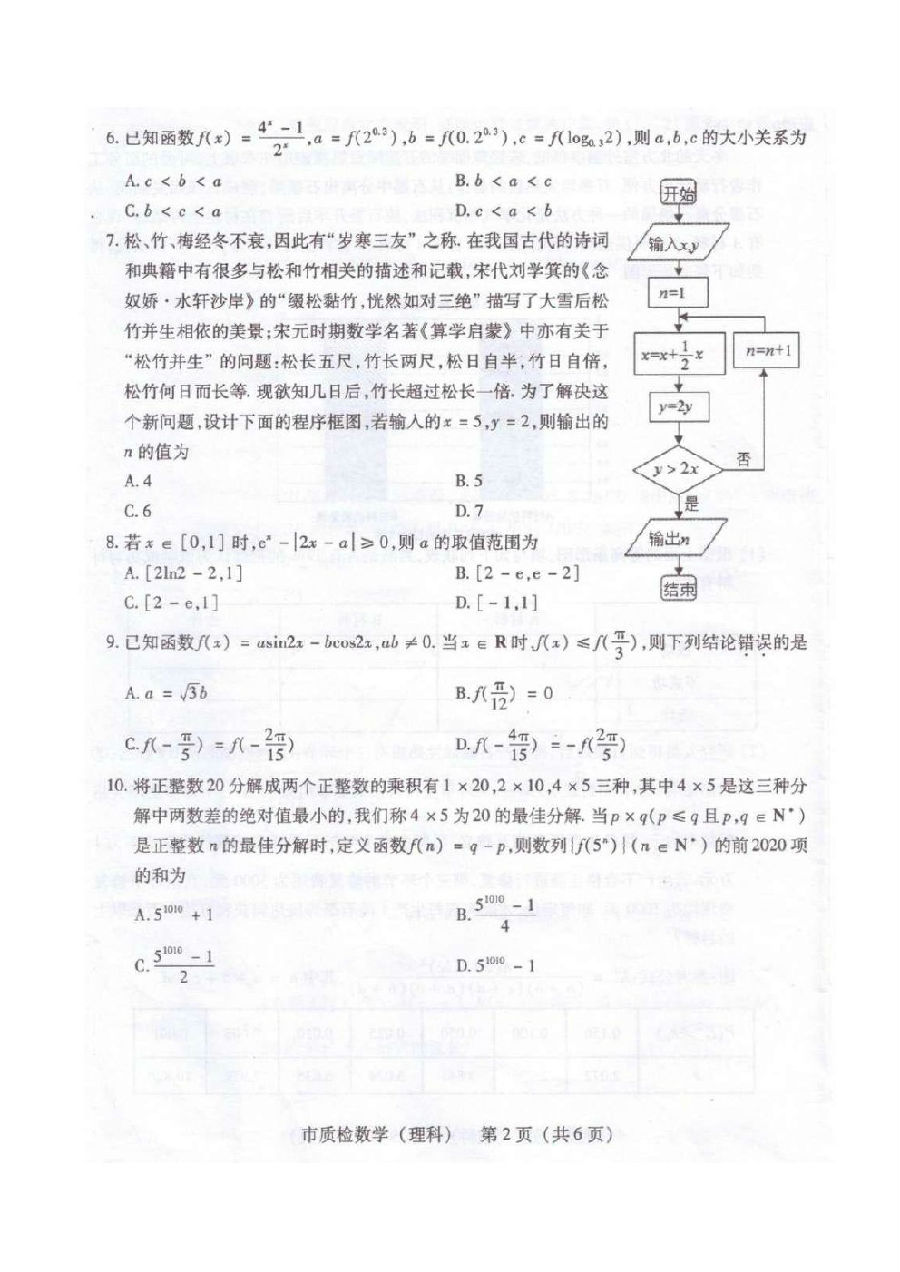 6. 已知函数f(x) = (4^x - 1)/2^x, a = f(2^0.2), b = f(0.2^0.3), c = f(log_0.3 2), 则a,b,c的大小关系为
A. c < b < a
B. b < a < c
C. b < c < a
D. c < a < b
7. 松、竹、梅经冬不衰,因此有“岁寒三友”之称. 在我国古代的诗词
和典籍中有很多与松和竹相关的描述和记载,宋代刘学箕的《念
奴娇·水轩沙岸》的“缀松黏竹,恍然如对三绝”描写了大雪后松
竹并生相依的美景;宋元时期数学名著《算学启蒙》中亦有关于
“松竹并生”的问题:松长五尺,竹长两尺,松日自半,竹日自倍,
松竹何日而长等. 现欲知几日后,竹长超过松长一倍. 为了解决这
个新问题,设计下面的程序框图,若输入的x = 5, y = 2,则输出的
n的值为
A. 4
B. 5
C. 6
D. 7
开始
输入x,y
n=1
x=x+1/2 x
n=n+1
y=2y
y>2x
否
是
输出n
结束
8. 若x ∈ [0,1]时,e^x - |2x - a| ≥ 0,则a的取值范围为
A. [2ln2 - 2,1]
B. [2 - e,e - 2]
C. [2 - e,1]
D. [-1,1]
9. 已知函数f(x) = asin2x - bcos2x, ab ≠ 0. 当x ∈ R时,f(x) ≤ f(π/3),则下列结论错误的是
A. a = √3b
B. f(π/12) = 0
C. f(-π/5) = f(-2π/15)
D. f(-4π/15) = -f(2π/5)
10. 将正整数20分解成两个正整数的乘积有1×20,2×10,4×5三种,其中4×5是这三种分
解中两数差的绝对值最小的,我们称4×5为20的最佳分解. 当p×q(p ≤ q且p,q ∈ N*)
是正整数n的最佳分解时,定义函数f(n) = q - p,则数列{f(5^n)}(n ∈ N*)的前2020项
的和为
A. 5^1010 + 1
B. (5^1010 - 1)/4
C. (5^1010 - 1)/2
D. 5^1010 - 1
市质检数学(理科) 第2页(共6页)